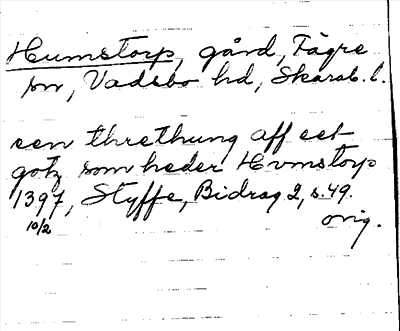 Humstorp, gård, Fägre
sn, Vadsbo hd, Skarab. l.
een threthung aff eet
gotz som heder Hvmstorp
1397, Styffe, Bidrag 2, s. 49.
10/2
orig.